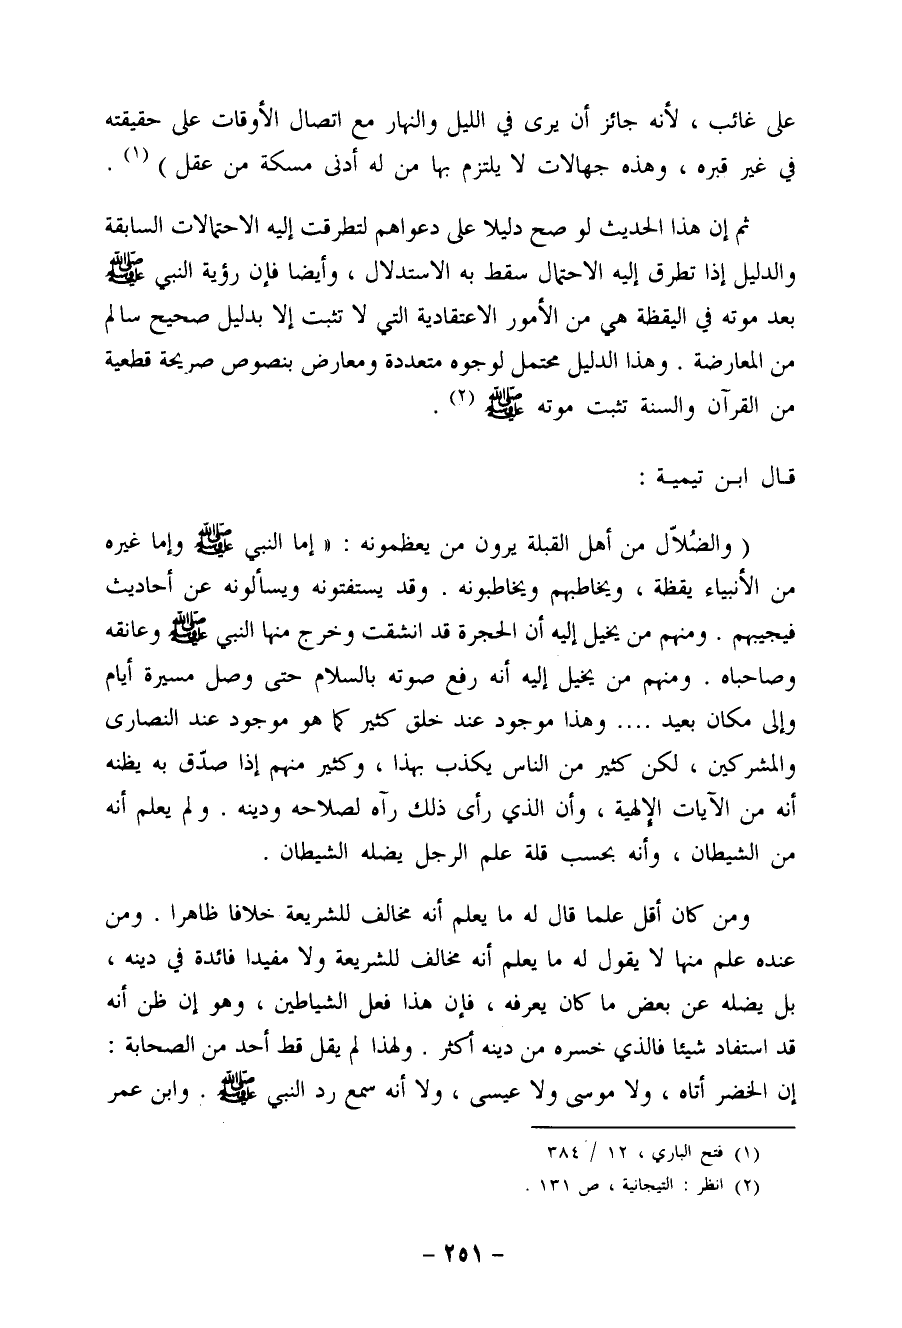 على غائب ، لأنه جائز أن يرى في الليل والنهار مع اتصال الأوقات على حقيقته
في غير قبره ، وهذه جهالات لا يلتزم بها من له أدنى مسكة من عقل ) (١) .
ثم إن هذا الحديث لو صح دليلا على دعواهم لتطرقت إليه الاحتمالات السابقة
والدليل إذا تطرق إليه الاحتمال سقط به الاستدلال ، وأيضا فإن رؤية النبي ﷺ
بعد موته في اليقظة هي من الأمور الاعتقادية التي لا تثبت إلا بدليل صحيح سالم
من المعارضة . وهذا الدليل محتمل لوجوه متعددة ومعارض بنصوص صريحة قطعية
من القرآن والسنة تثبت موته ﷺ (٢) .
قال ابن تيمية :
( والضُلاّل من أهل القبلة يرون من يعظمونه : « إما النبي ﷺ وإما غيره
من الأنبياء يقظة ، ويخاطبهم ويخاطبونه . وقد يستفتونه ويسألونه عن أحاديث
فيجيبهم . ومنهم من يخيل إليه أن الحجرة قد انشقت وخرج منها النبي ﷺ وعانقه
وصاحباه . ومنهم من يخيل إليه أنه رفع صوته بالسلام حتى وصل مسيرة أيام
وإلى مكان بعيد .... وهذا موجود عند خلق كثير كما هو موجود عند النصارى
والمشركين ، لكن كثير من الناس يكذب بهذا ، وكثير منهم إذا صدّق به يظنه
أنه من الآيات الإلهية ، وأن الذي رأى ذلك رآه لصلاحه ودينه . ولم يعلم أنه
من الشيطان ، وأنه بحسب قلة علم الرجل يضله الشيطان .
ومن كان أقل علما قال له ما يعلم أنه مخالف للشريعة خلافا ظاهرا . ومن
عنده علم منها لا يقول له ما يعلم أنه مخالف للشريعة ولا مفيدا فائدة في دينه ،
بل يضله عن بعض ما كان يعرفه ، فإن هذا فعل الشياطين ، وهو إن ظن أنه
قد استفاد شيئا فالذي خسره من دينه أكثر . ولهذا لم يقل قط أحد من الصحابة :
إن الخضر أتاه ، ولا موسى ولا عيسى ، ولا أنه سمع رد النبي ﷺ . وابن عمر
(١) فتح الباري ، ١٢ / ٣٨٤
(٢) انظر : التيجانية ، ص ١٣١ .
– ٢٥١ –